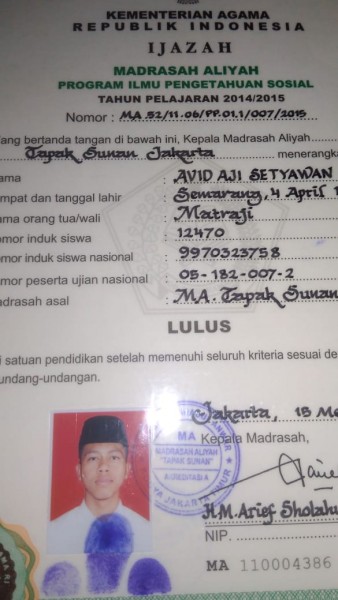 KEMENTERIAN AGAMA
REPUBLIK INDONESIA
IJAZAH
MADRASAH ALIYAH
PROGRAM ILMU PENGETAHUAN SOSIAL
TAHUN PELAJARAN 2014/2015
Nomor : MA.52/11.06/PP.01.1/007/2015
ang bertanda tangan di bawah ini, Kepala Madrasah Aliyah
Tapak Sunan Jakarta menerangka
ama : AVID AJI SETYAWAN
mpat dan tanggal lahir : Semarang, 4 April 1
ama orang tua/wali : Matraji
omor induk siswa : 12470
omor induk siswa nasional : 9970323758
omor peserta ujian nasional : 05-182-007-2
adrasah asal : MA. Tapak Sunan
LULUS
i satuan pendidikan setelah memenuhi seluruh kriteria sesuai de
undang-undangan.
Jakarta, 15 Me
Kepala Madrasah,
MA
MADRASAH ALIYAH
"TAPAK SUNAN"
JAKARTA TIMUR
H.M. Arief Sholahu
NIP.
MA 110004386